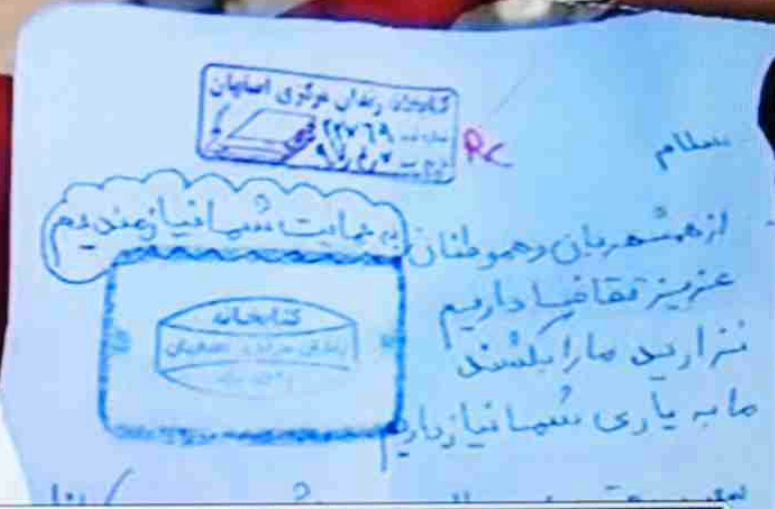 کتابخانه زندان مرکزی اصفهان
۲۲۷۶۹
Rc
سلام
از همشهریان و هموطنان
عزیز تقاضا داریم
نزارید ما را بکشند
ما به یاری شما نیاز داریم
به حمایت شما نیازمندیم
کتابخانه
زندان مرکزی اصفهان